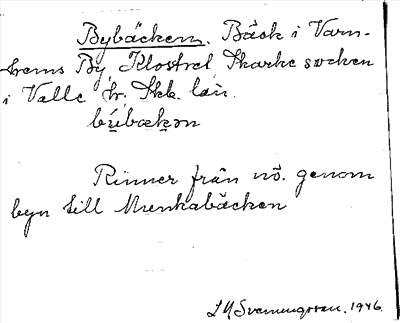 Bybäcken. Bäck i Varn-
hems By, Klostret Skarke socken
i Valle hr. Skb. län.
býbækən
Rinner från nö. genom
byn till Munkabäcken
Svenungsson. 1946.